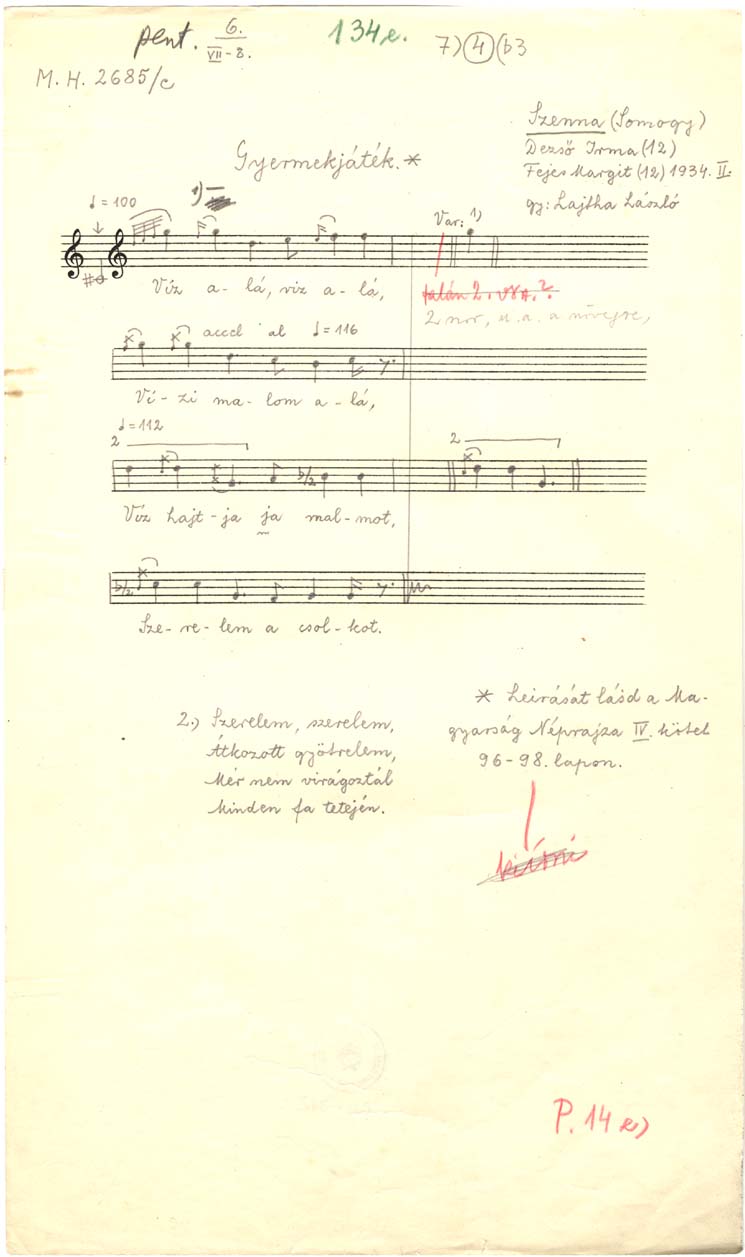 pent. 6. / VII-8.
134e.
7) 4 (b3
M. H. 2685/c
Szenna (Somogy)
Dezső Irma (12)
Fejes Margit (12) 1934. II.
gy: Lajtha László
Gyermekjáték.*
♩ = 100
1)
Var: 1)
Víz a- lá, viz a- lá,
talán 2. vsz. ?
2 sor,
accel al ♩= 116
Ví- zi ma- lom a- lá,
♩= 112
2
2
b/2
Víz hajt- ja ja mal- mot,
b/2
Sze- re- lem a csol- kot.
2.) Szerelem, szerelem,
Átkozott gyötrelem,
Mér nem virágoztál
Minden fa tetején.
* Leirását lásd a Ma-
gyarság Néprajza IV. kötet
96-98. lapon.
kiírni
P. 14